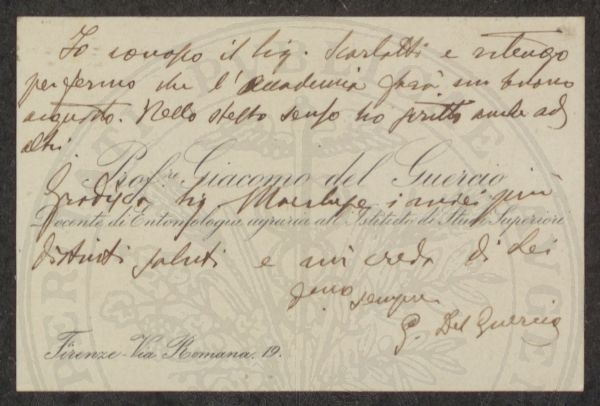 Io conosco il Sig. Scarlatti e ritengo
per fermo che l'accademia farà un buono
acquisto. Nello stesso senso ho scritto anche ad
altri.
Prof.re Giacomo del Guercio
Gradisca Sig. i miei più
Docente di Entomologia agraria all'Istituto di Studi Superiori
distinti saluti e mi creda di Lei
sempre
G. Del Guercio
Firenze - Via Romana, 19.